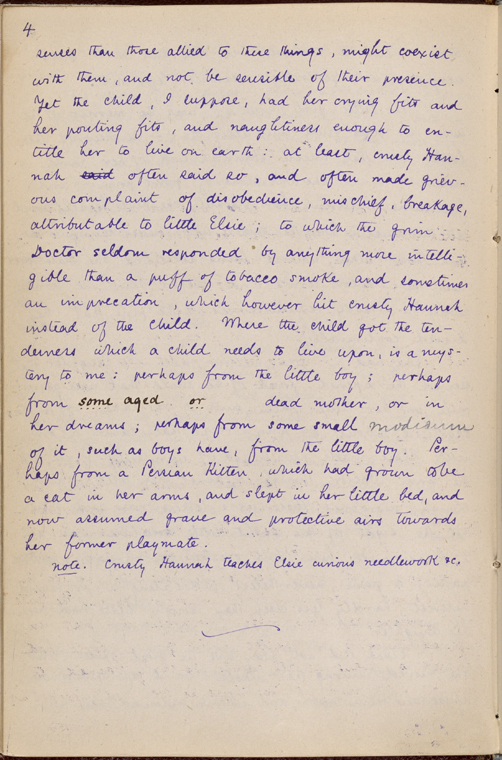 4
senses than those allied to these things, might coexist
with them, and not be sensible of their presence.
Yet the child, I suppose, had her crying fits and
her pouting fits, and naughtiness enough to en-
title her to live on earth: at least, crusty Han-
nah said often said so, and often made griev-
ous complaint of disobedience, mischief, breakage,
attributable to little Elsie; to which the grim
Doctor seldom responded by anything more intelli-
gible than a puff of tobacco smoke, and sometimes
an imprecation, which however hit crusty Hannah
instead of the child. Where the child got the ten-
derness which a child needs to live upon, is a mys-
tery to me: perhaps from the little boy; perhaps
from some aged or dead mother, or in
her dreams; perhaps from some small modicum
of it, such as boys have, from the little boy. Per-
haps from a Persian Kitten, which had grown to be
a cat in her arms, and slept in her little bed, and
now assumed grave and protective airs towards
her former playmate.
note. Crusty Hannah teaches Elsie curious needlework &c.